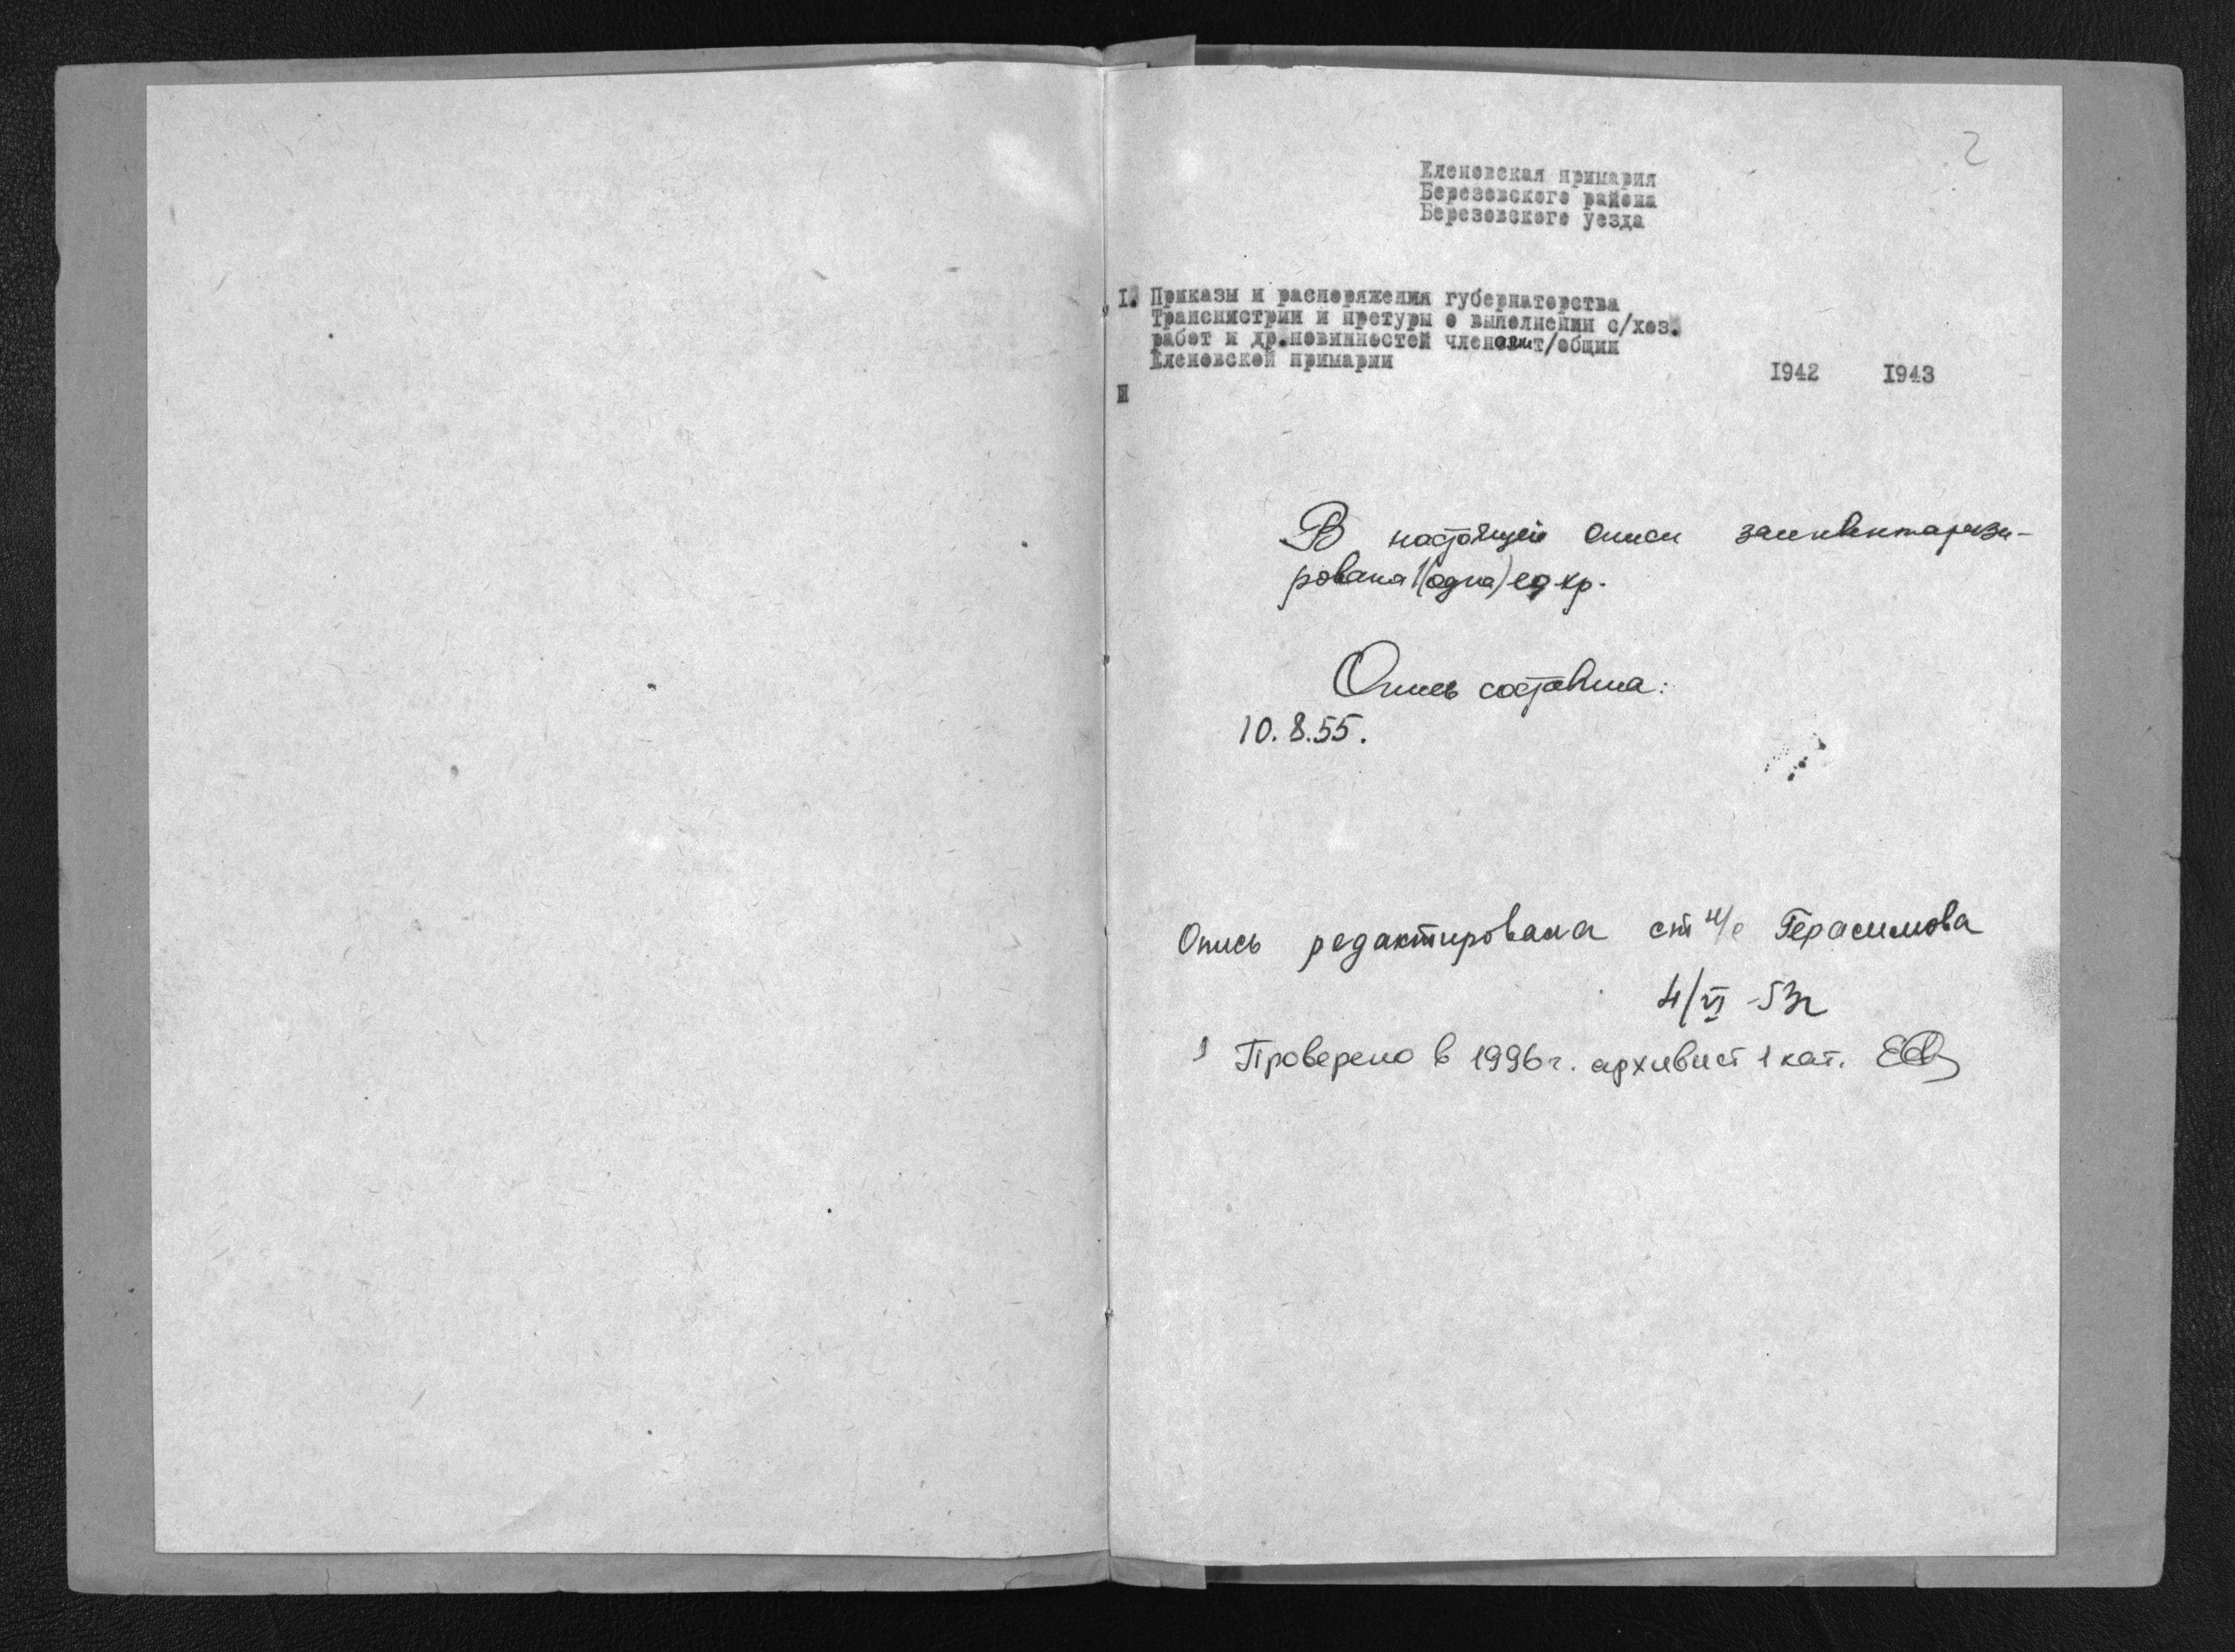 2
Еленовская примария
Березовского района
Березовского уезда
I. Приказы и распоряжения губернаторства
Транснистрии и претуры о выполнении с/хоз.
работ и др.повинностей членами т/общин
Еленовской примарии
1942 1943
В настоящей описи заинвентаризи-
рована 1(одна) ед хр.
Опись составила:
10.8.55.
Опись редактирована ст н/с Герасимова
4/VI -53г
1 Проверено в 1996 г. архивист 1 кат.